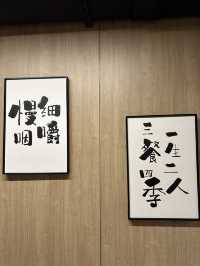 细嚼
慢咽
一生二人
三餐四季